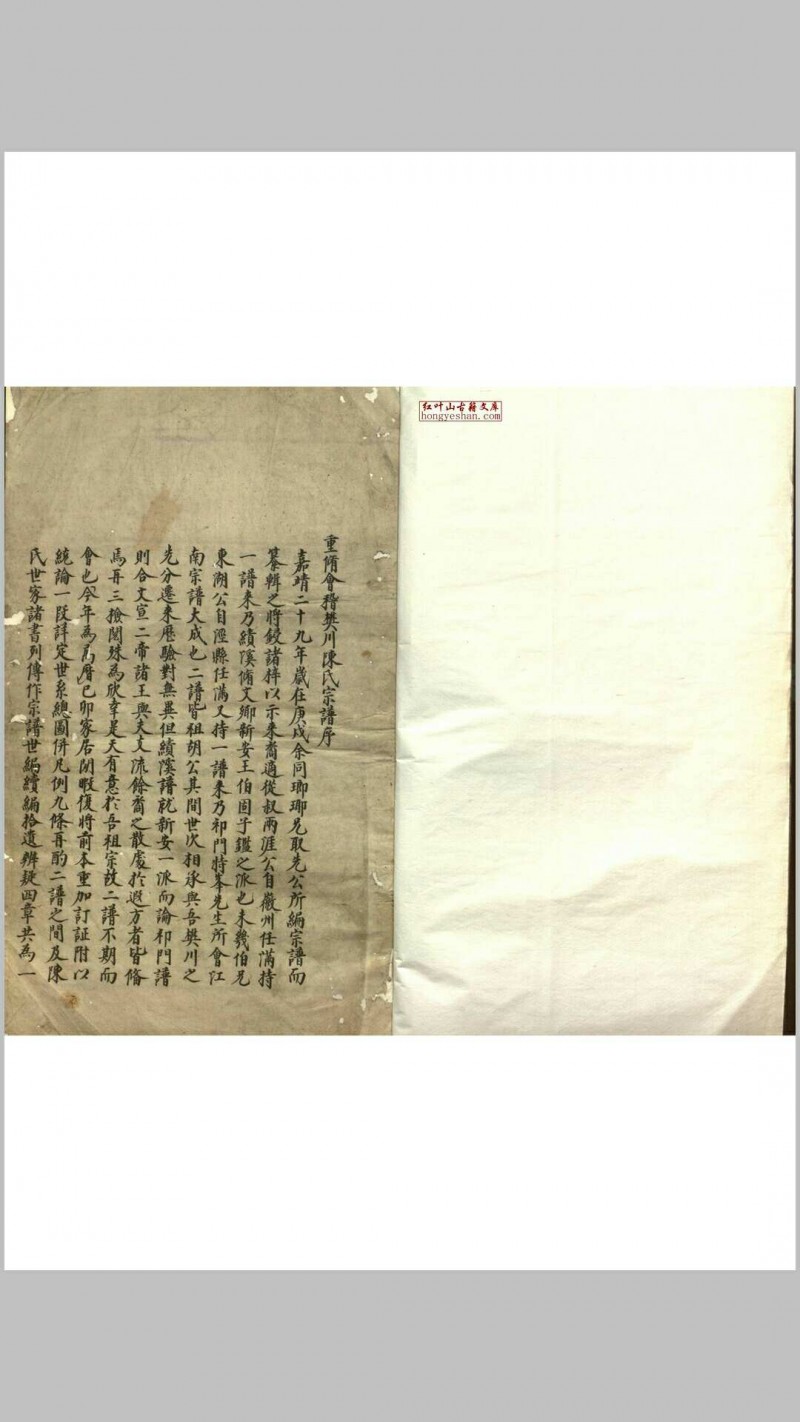 红叶山古籍文库
hongyeshan.com
重脩會稽樊川陳氏宗譜序
嘉靖二十九年歲在庚戌余同瑯琊兄取先公所編宗譜而
纂輯之將鋟諸梓以示来裔適從叔兩涯公自徽州任滿持
一譜来乃績溪脩文鄉新安王伯固子鑑之派也未幾伯兄
東湖公自涇縣任滿又持一譜来乃祁門特峯先生所會江
南宗譜大成也二譜皆祖胡公其間世次相承與吾樊川之
先分遷来歷驗對無異但績溪譜就新安一派而論祁門譜
則合文宣二帝諸王與夫支流餘裔之散處於遐方者皆脩
焉再三撿閱殊為欣幸是天有意於吾祖宗故二譜不期而
會也今年為萬曆己卯家居閒暇復將前本重加訂証附以
統論一叚詳定世系總圖併凡例九條再酌二譜之間及陳
氏世家諸書列傳作宗譜世編續編拾遺辨疑四章共為一